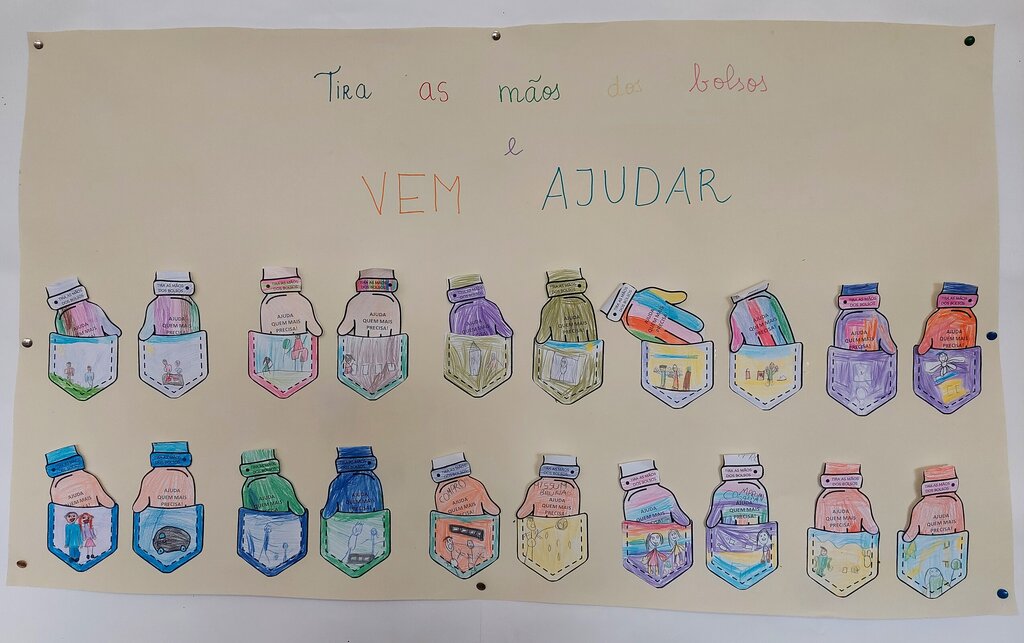 Tira as mãos dos bolsos
e
VEM AJUDAR
TIRA AS MÃOS
DOS BOLSOS
AJUDA
QUEM MAIS
TIRA AS MÃOS
DOS BOLSOS
AJUDA
QUEM MAIS
PRECISA!
TIRA AS MÃOS
DOS BOLSOS
AJUDA
QUEM MAIS
PRECISA!
TIRA AS MÃOS
DOS BOLSOS
AJUDA
QUEM MAIS
PRECISA!
TIRA AS MÃOS
DOS BOLSOS
AJUDA
QUEM MAIS
TIRA AS MÃOS
DOS BOLSOS
AJUDA
QUEM MAIS
PRECISA!
TIRA AS MÃOS
DOS BOLSOS
TIRA AS MÃOS
DOS BOLSOS
AJUDA
QUEM MAIS
TIRA AS MÃOS
DOS BOLSOS
AJUDA
QUEM MAIS
PRECISA!
TIRA AS MÃOS
DOS BOLSOS
AJUDA
QUEM MAIS
PRECISA!
AJUDA
QUEM MAIS
AJUDA
QUEM MAIS
PRECISA!
TIRA AS MÃOS
DOS BOLSOS
AJUDA
QUEM MAIS
AJUDA
QUEM MAIS
TIRA AS MÃOS
DOS BOLSOS
AJUDA
QUEM MAIS
TIRA AS MÃOS
DOS BOLSOS
AJUDA
QUEM MAIS
PRECISA!
TIRA AS MÃOS
DOS BOLSOS
AJUDA
QUEM MAIS
TIRA AS MÃOS
DOS BOLSOS
AJUDA
QUEM MAIS
TIRA AS MÃOS
DOS BOLSOS
AJUDA
QUEM MAIS
PRECISA!
TIRA AS MÃOS
DOS BOLSOS
AJUDA
QUEM MAIS
PRECISA!